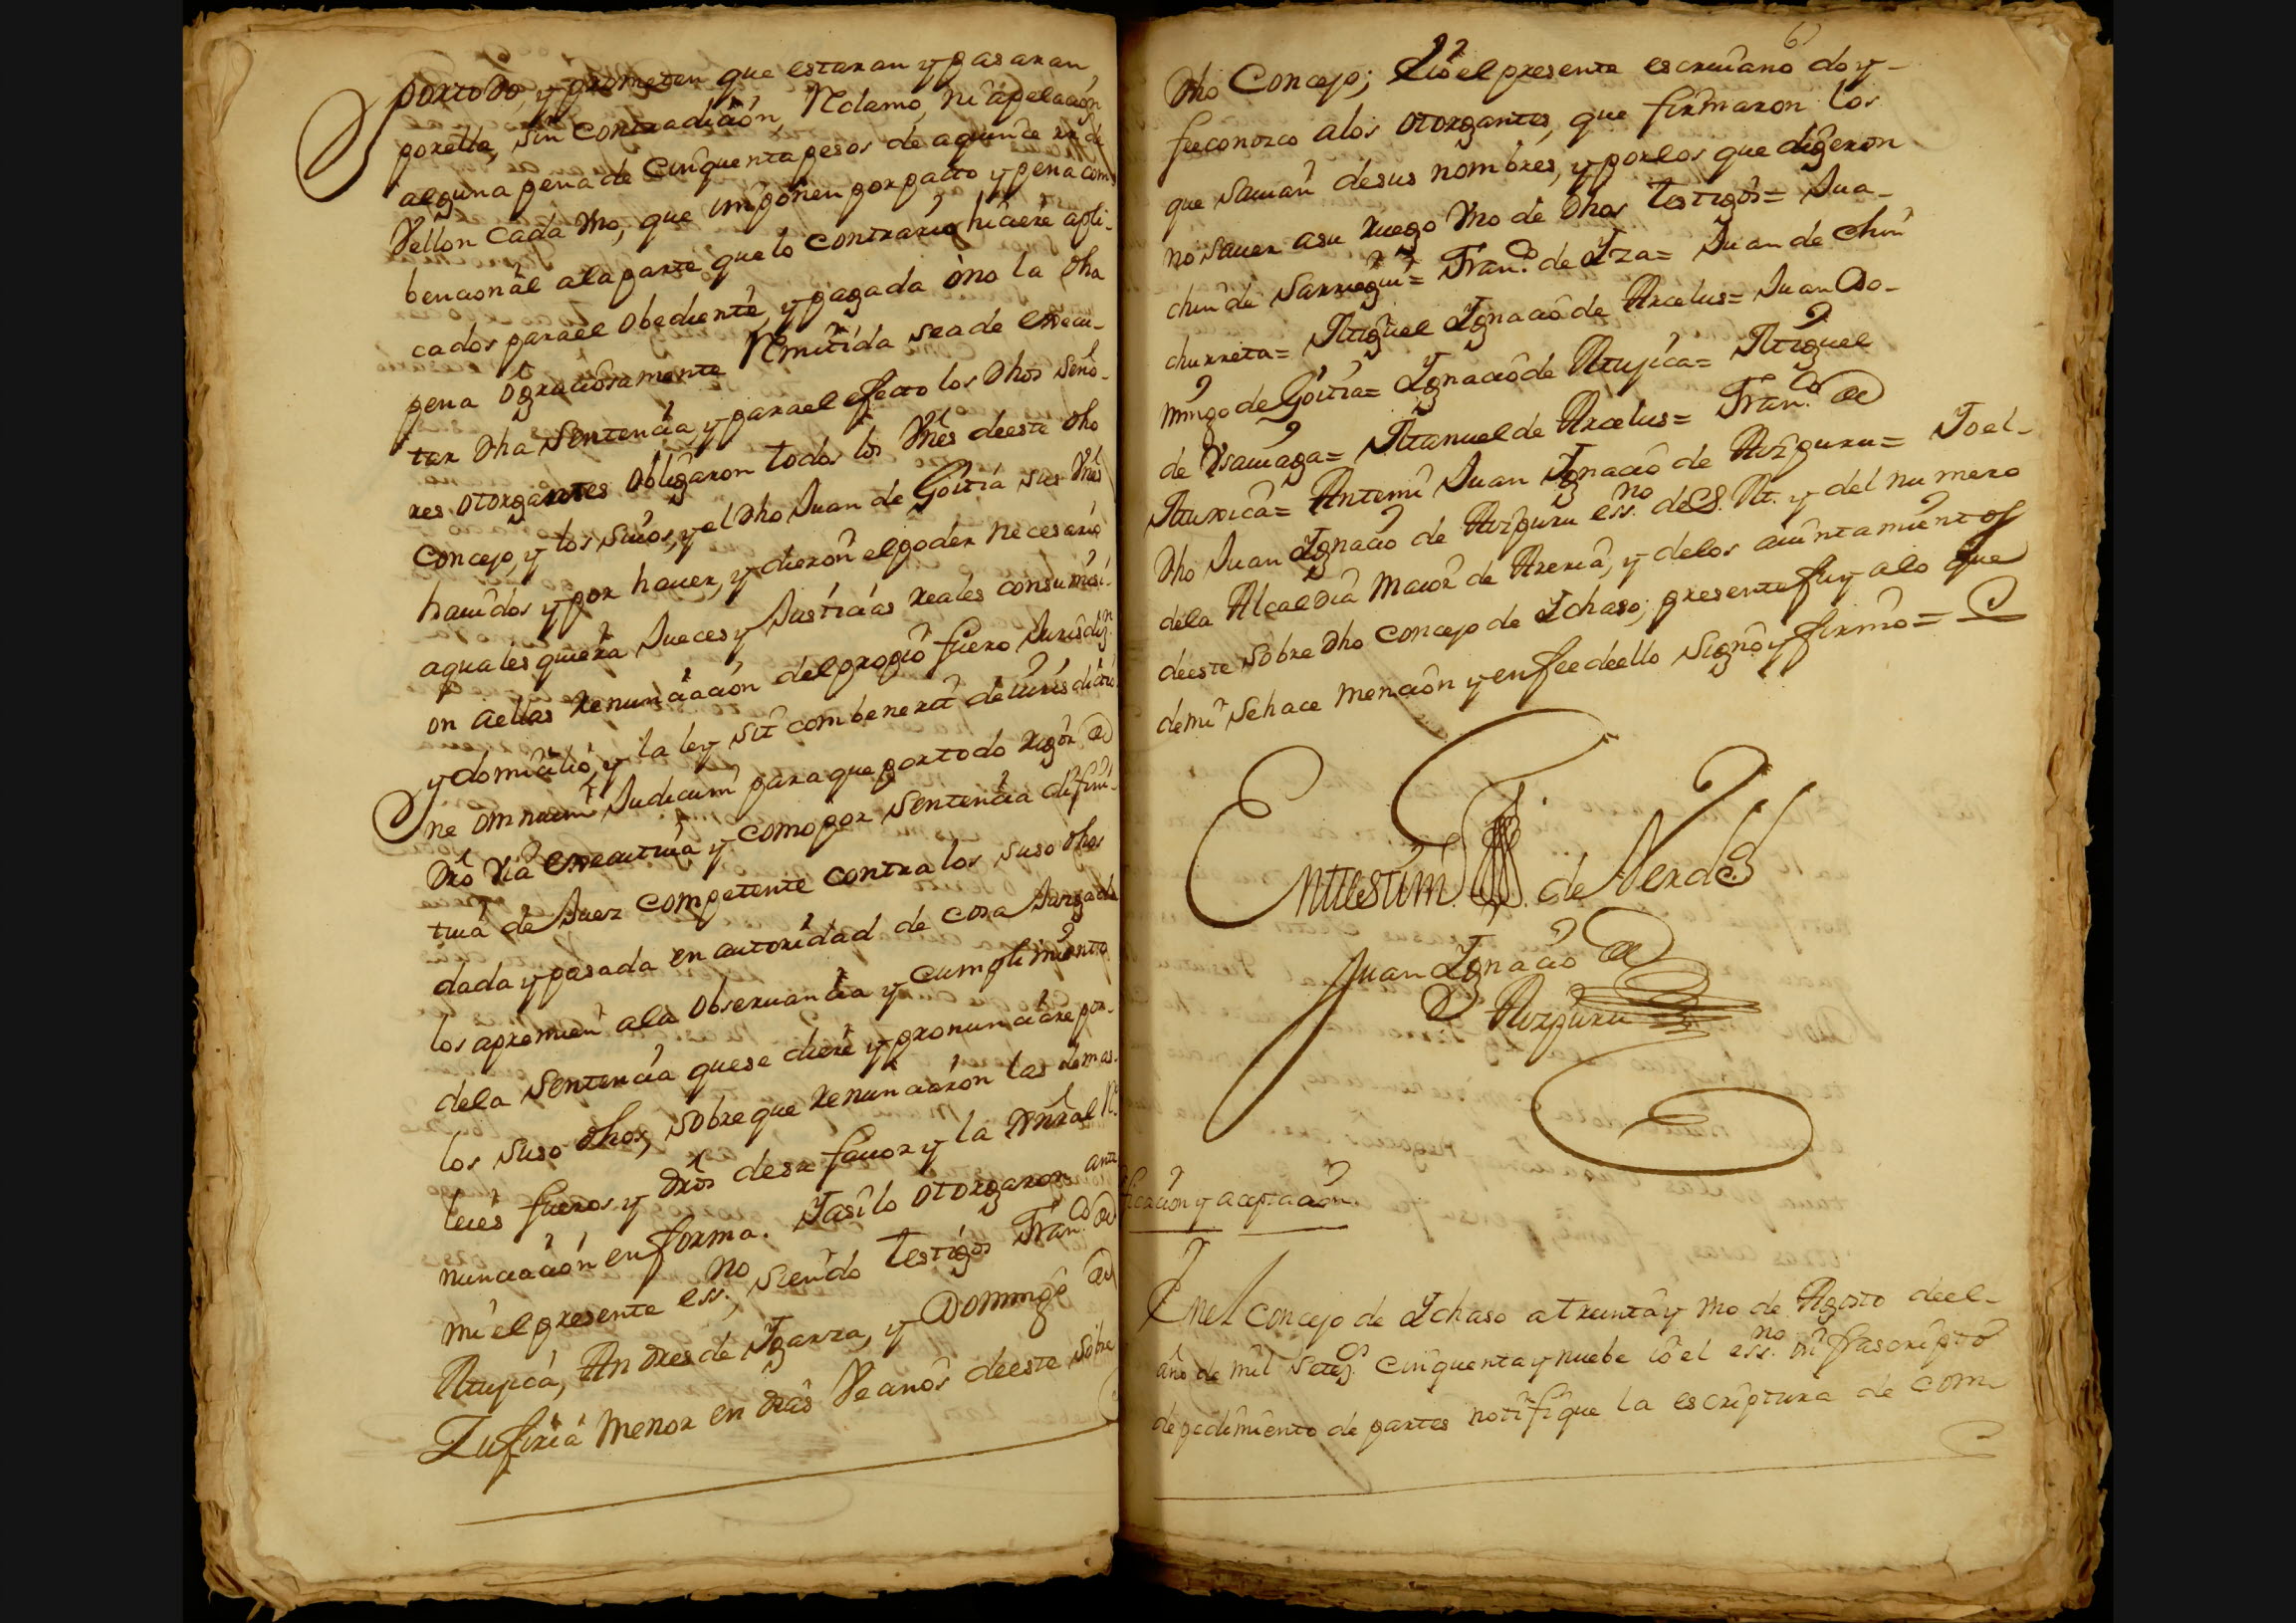 por todo, y prometen que estaran y pasaran
por ella, sin contradición, Reclamo, ni apelación
alguna pena de cinquenta pesos de a quince rs. de
Vellon cada vno, que imponen por pacto y pena com-
bencional a la parte que lo contrario hiciere apli-
cados para el obediente, y pagada ò no la dha
pena ò graciosamente Remitida sea de execu-
tar dha Sentencia, y para el efecto los dhos Seño-
res otorgantes obligaron todos los Vnes de este dho
Concejo, y los suios, y el dho Juan de Goitia sus Vnes
hauidos y por hauer, y dieron el poder necesario
a quales quiera Jueces y Justicias reales con sumisi-
on a ellas renunciación del propio fuero Jurisdizn.
y domicilio, y la ley sit combenerit de iurisdictio
ne omnium Judicum para que por todo rigor de
dro via executiua y como por Sentencia difini-
tiua de Juez competente contra los suso dhos
dada y pasada en autoridad de cosa Juzgada
los apremien a la obseruancia y cumplimiento
de la Sentencia que se diere y pronunciare por
los suso dhos, sobre que renunciaron las demas
leies fueros y dros de su fauor y la gnral Re-
nunciación en forma. Y asi lo otorgaron ante
mi el presente ess.no, siendo testigos Fran.co de
Muxica, Andres de Igarza, y Domingo de
Zufiria menor en dias Vecinos de este sobre
12
6
dho Concejo; è Io el presente escriuano doy
fee conozco a los otorgantes, que firmaron los
que sauian de sus nombres, y por los que digeron
no sauer a su ruego vno de dhos testigos= Jua-
chin de Sarriegui= Fran.co de Iza= Juan de Chin
churreta= Miguel Ignacio de Arcelus= Juan Do-
mingo de Goitia= Ignacio de Muxica= Miguel
de Vsauiaga= Manuel de Arcelus= Fran.co de
Muxica= Ante mi Juan Ignacio de Aizpuru= Io el
dho Juan Ignacio de Aizpuru ess.no de S. M. y del numero
de la Alcaldia maior de Areria, y de los aiuntamientos
de este sobre dho concejo de Ichaso; presente fuy a lo que
de mi se hace mencion y en fee de ello signo y firmo=
En testim.o de Verdad
Juan Ignacio de
Aizpuru
ficacion y aceptacion
En el Concejo de Ichaso a treinta y vno de Agosto de el
año de mil setez.os cinquenta y nuebe io el ess.no infrascripto
de pedimiento de partes notifique la escriptura de com